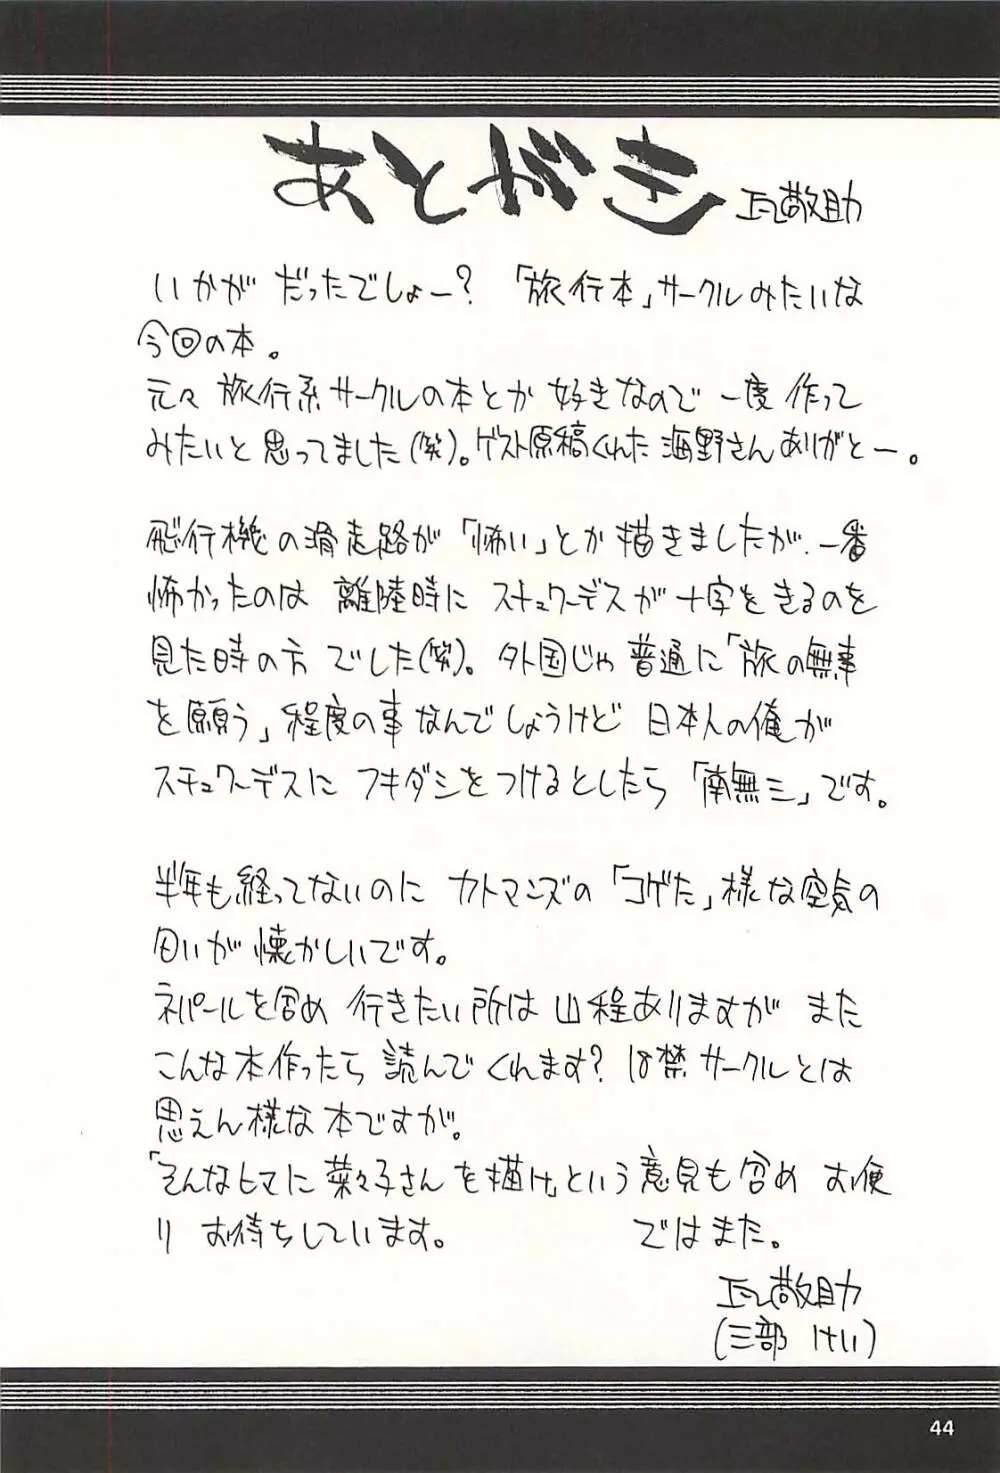 あとがき 瓦敬助
いかがだったでしょー?「旅行本」サークルみたいな
今回の本。
元々旅行系サークルの本とか好きなので一度作って
みたいと思ってました(笑)。ゲスト原稿くれた海野さんありがとー。
飛行機の滑走路が「怖い」とか描きましたが、一番
怖かったのは離陸時にスチュワーデスが十字をきるのを
見た時の方でした(笑)。外国じゃ普通に「旅の無事
を願う」程度の事なんでしょうけど日本人の俺が
スチュワーデスにフキダシをつけるとしたら「南無三」です。
半年も経ってないのにカトマンズの「コゲた」様な空気の
匂いが懐かしいです。
ネパールを含め行きたい所は山程ありますがまた
こんな本作ったら読んでくれます?18禁サークルとは
思えん様な本ですが。
「そんなヒマに菜々子さんを描け」という意見も含めお便
りお待ちしています。 ではまた。
瓦敬助
(三部けい)
44